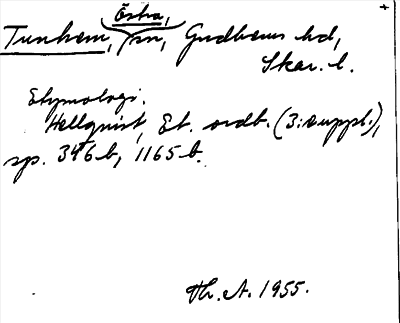 Östra,
Tunhem, sn, Gudhems hd,
Skar. l.
Etymologi.
Hellquist, Et. ordb. (3: suppl.),
sp. 346 b, 1165 b.
Th. A. 1955.